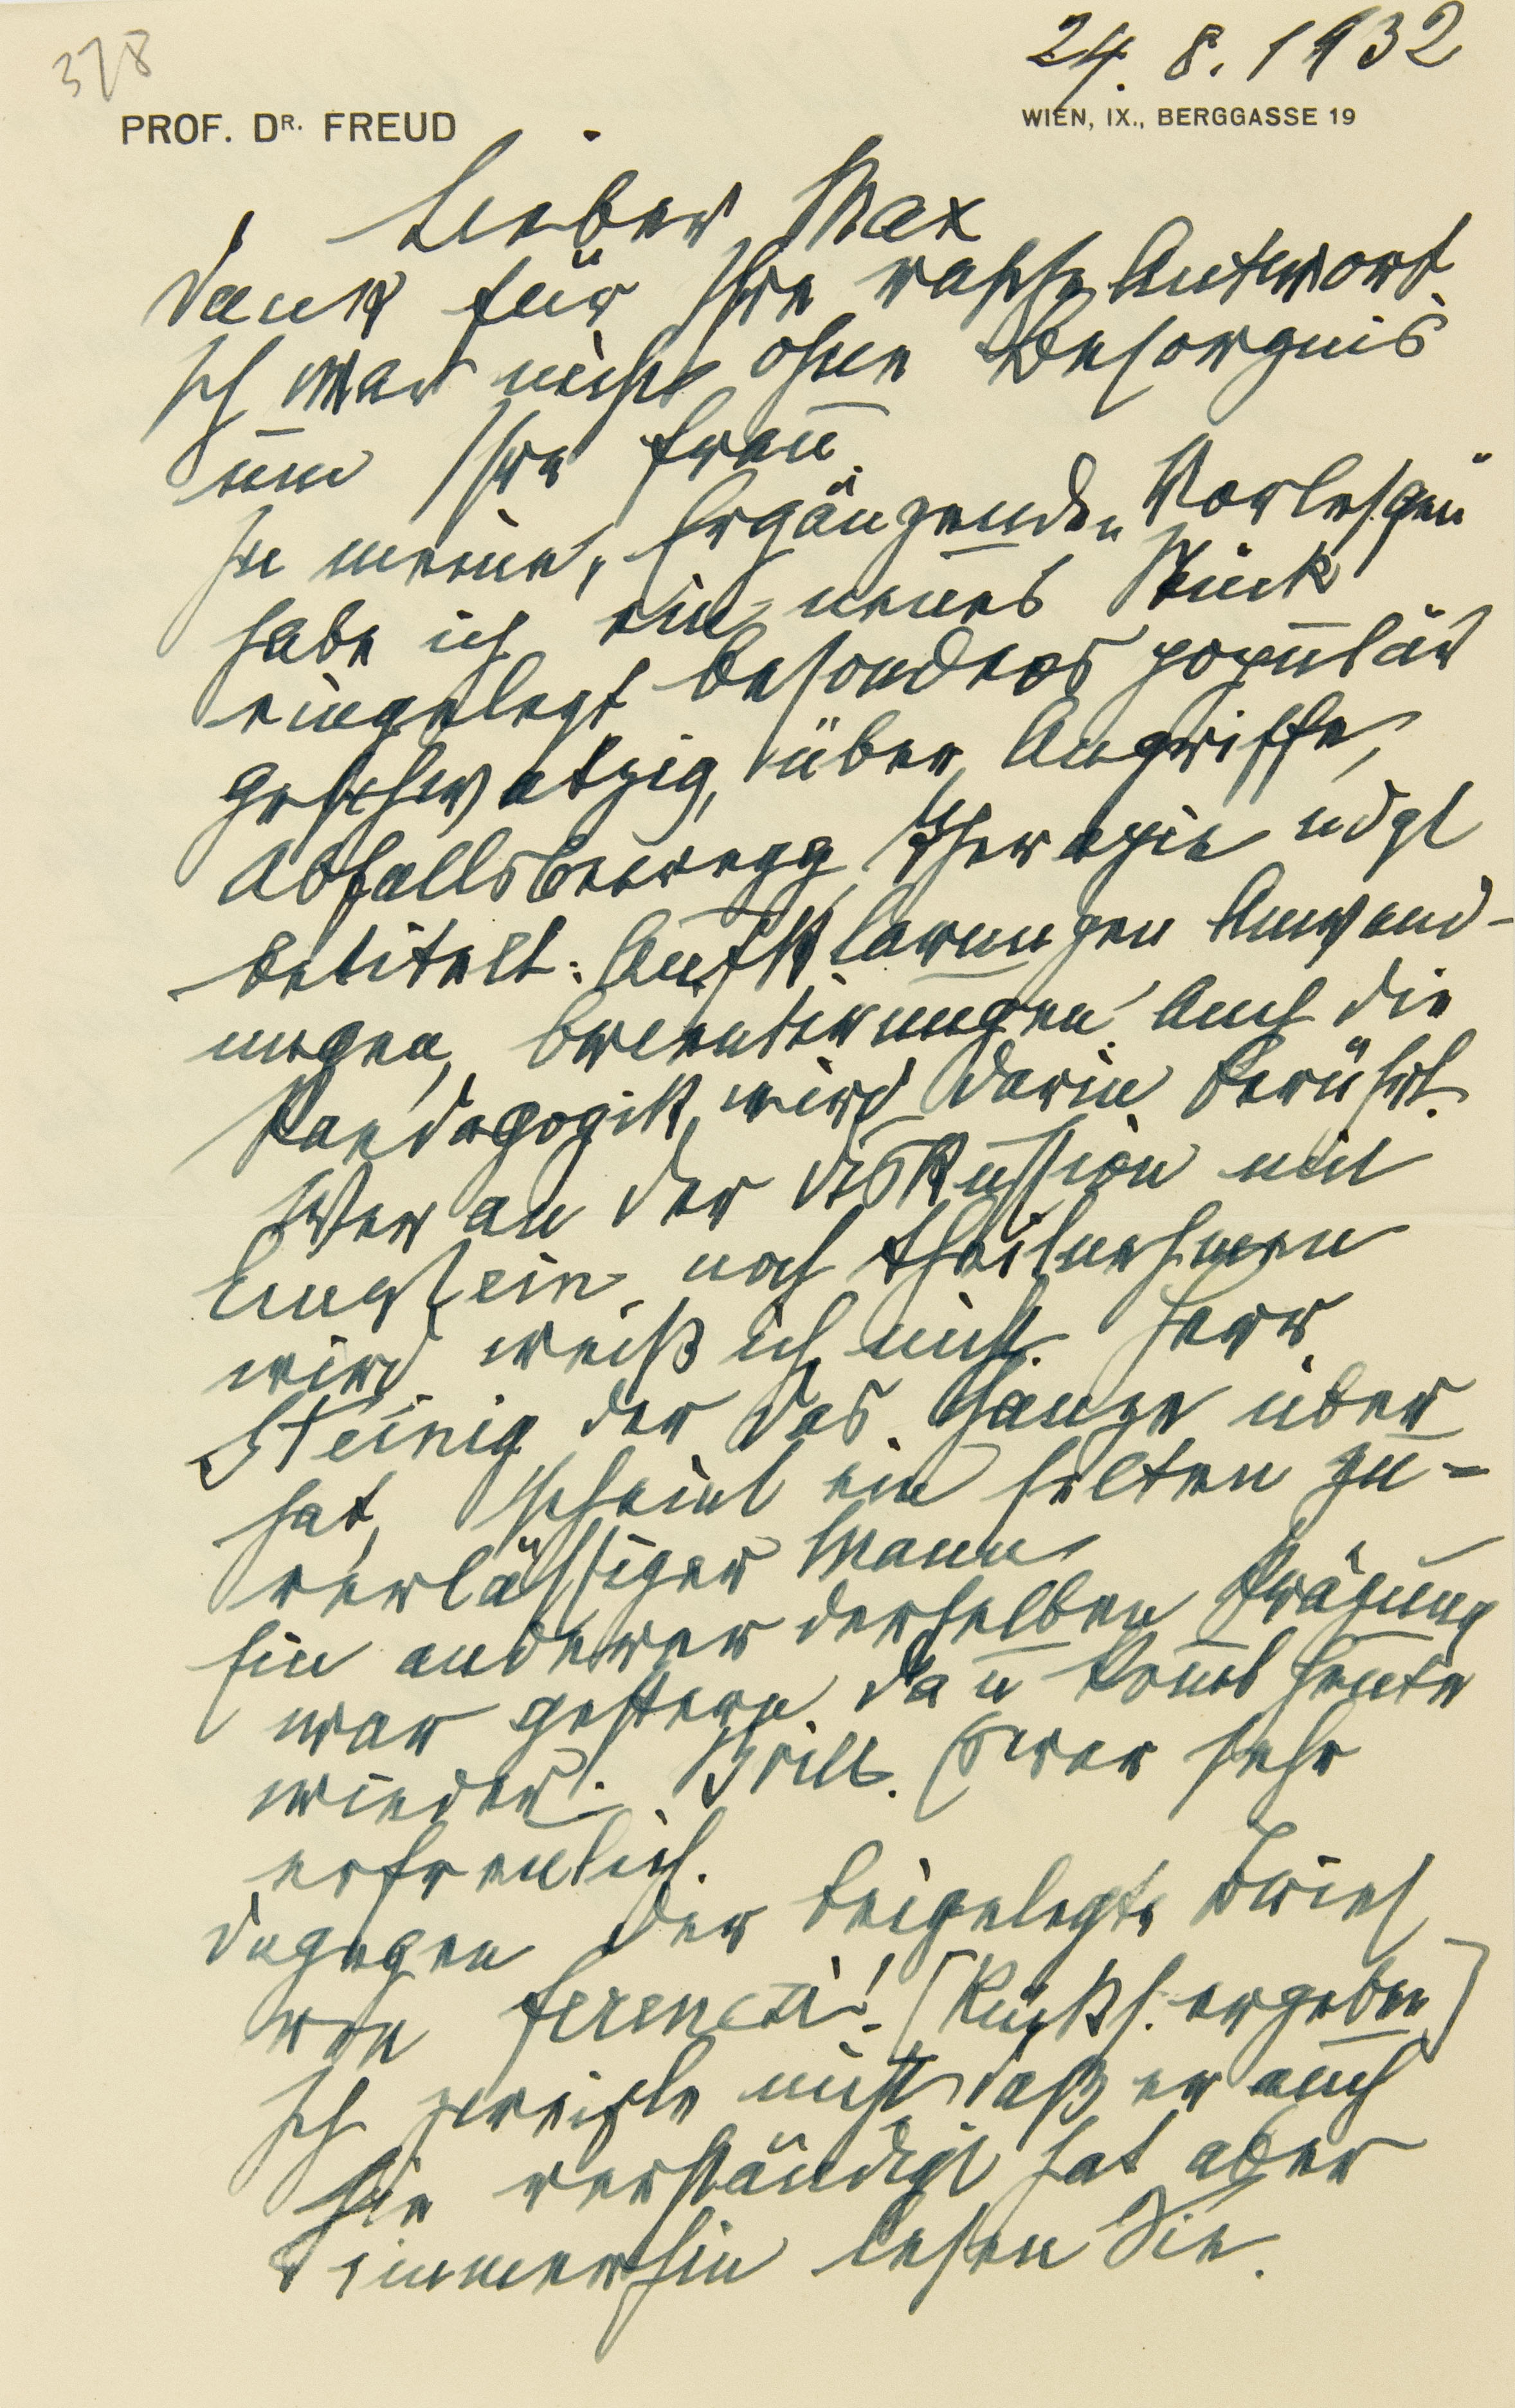 378
24. 8. 1932
PROF. DR. FREUD
WIEN, IX., BERGGASSE 19
Lieber Max
Dank für Ihre rasche Antwort.
Ich war nicht ohne Besorgnis
um Ihre Frau.
In meine „Ergänzenden Vorlesgen“
habe ich ein neues Stück
eingelegt besonders populär
geschwätzig, über Angriffe,
Abfallsbewegg, Therapie udgl
betitelt: Aufklärungen Anwend-
ungen, Orientirungen. Auch die
Paedagogik wird darin berührt.
Wer an der Diskussion mit
Einstein noch theilnehmen
wird weiß ich nicht. Herr
Steinig der das Ganze über
hat, scheint ein selten zu-
verlässiger Mann
Ein anderer derselben Prägung
war gestern da u kommt heute
wieder: Brill. Es war sehr
erfreulich.
Dagegen der beigelegte Brief
von Ferenczi! (Rücks. ergeben)
Ich zweifle nicht daß er auch
Sie verständigt hat aber
immerhin lesen Sie.